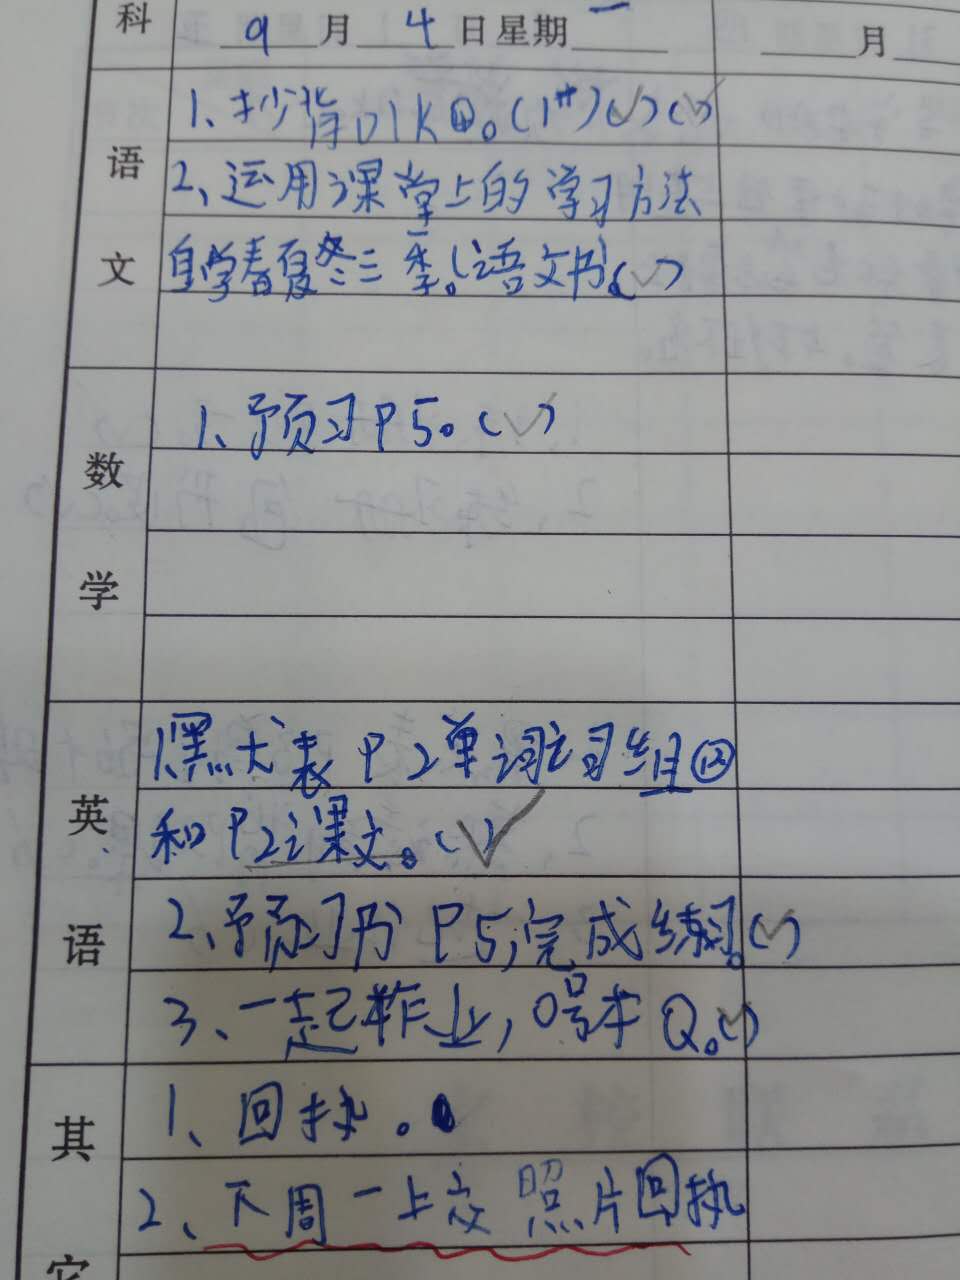 科 9月4日星期一 月
语文
1、抄背D1K④。(1廾)(✓)(✓)
2、运用课堂上的学习方法
自学春夏冬三季。(语文书。(✓)
数学
1、预习P5。(✓)
英语
1、黑大表P2单词词组
和P2课文。(✓)
2、预习书P5,完成练习。(✓)
3、一起作业,0号本Q。(✓)
其它
1、回执。
2、下周一上交照片回执